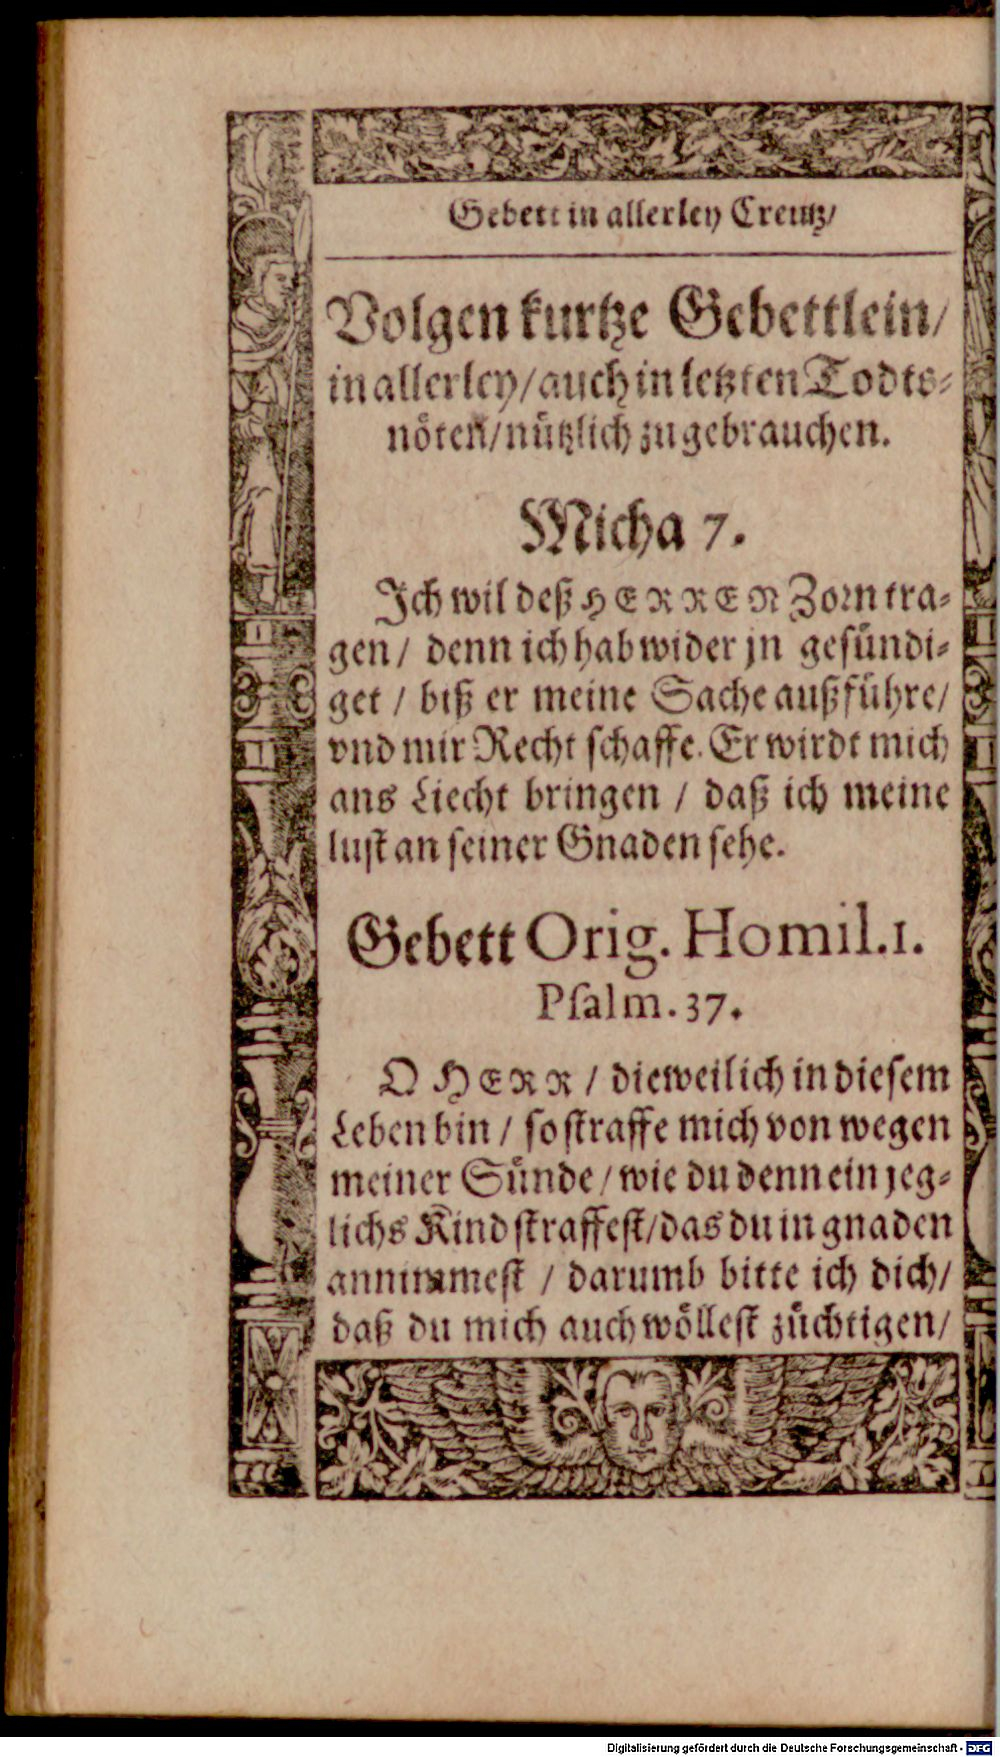 Gebett in allerley Creutz/
Volgen kurtze Gebettlein/
in allerley/ auch in letzten Todts-
nöten/ nützlich zu gebrauchen.
Micha 7.
Ich wil deß HERREN Zorn tra-
gen/ denn ich hab wider jn gesündi-
get / biß er meine Sache außführe/
vnd mir Recht schaffe. Er wirdt mich
ans Liecht bringen / daß ich meine
lust an seiner Gnaden sehe.
Gebett Orig. Homil. 1.
Psalm. 37.
O HERR / dieweil ich in diesem
Leben bin / so straffe mich von wegen
meiner Sünde/ wie du denn ein jeg-
lichs Kind straffest/ das du in gnaden
annimmest / darumb bitte ich dich/
daß du mich auch wöllest züchtigen/
Digitalisierung gefördert durch die Deutsche Forschungsgemeinschaft - DFG